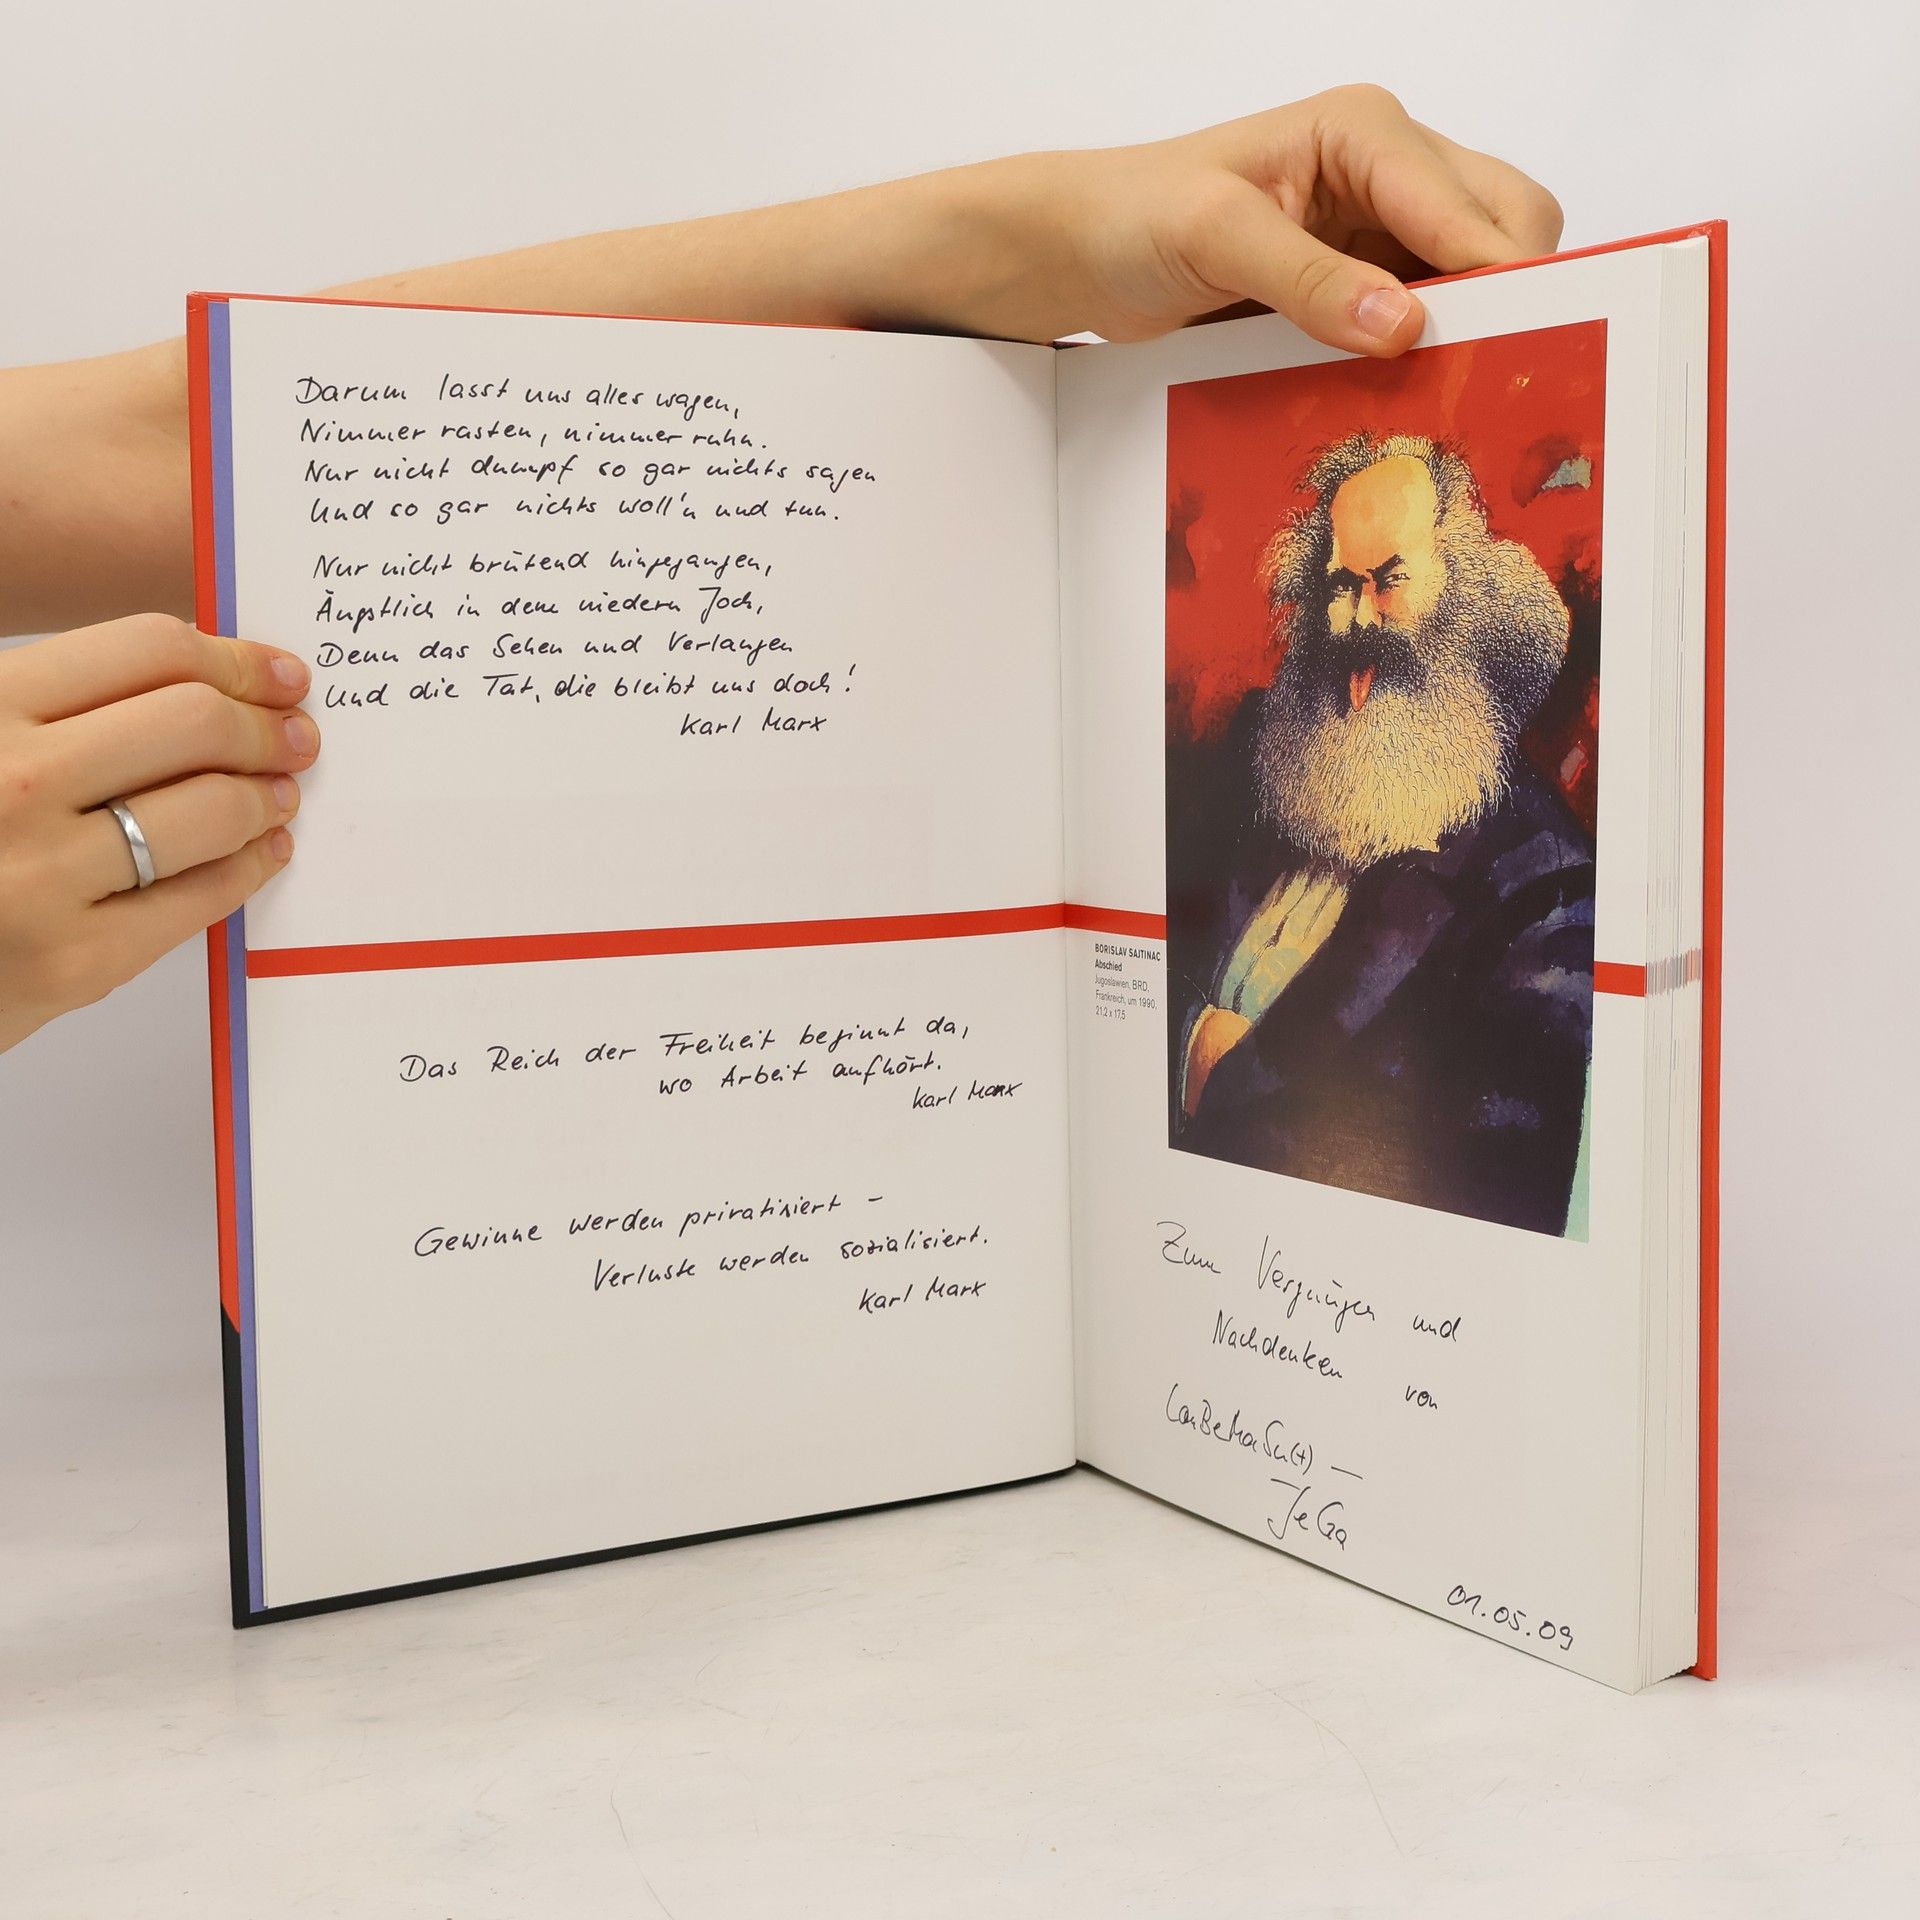 Darum lasst uns alles wagen,
Nimmer rasten, nimmer ruhn.
Nur nicht dumpf so gar nichts sagen
Und so gar nichts woll'n und tun.
Nur nicht brütend hingegangen,
Ängstlich in dem niedern Joch,
Denn das Sehen und Verlangen
Und die Tat, die bleibt uns doch!
Karl Marx
Das Reich der Freiheit beginnt da,
wo Arbeit aufhört.
Karl Marx
Gewinne werden privatisiert –
Verluste werden sozialisiert.
Karl Marx
BORISLAV SAJTINAC
Abschied
Jugoslawien, BRD,
Frankreich, um 1990,
21,2 x 17,5
Zum Vergnügen und
Nachdenken von
JeGa
01.05.09